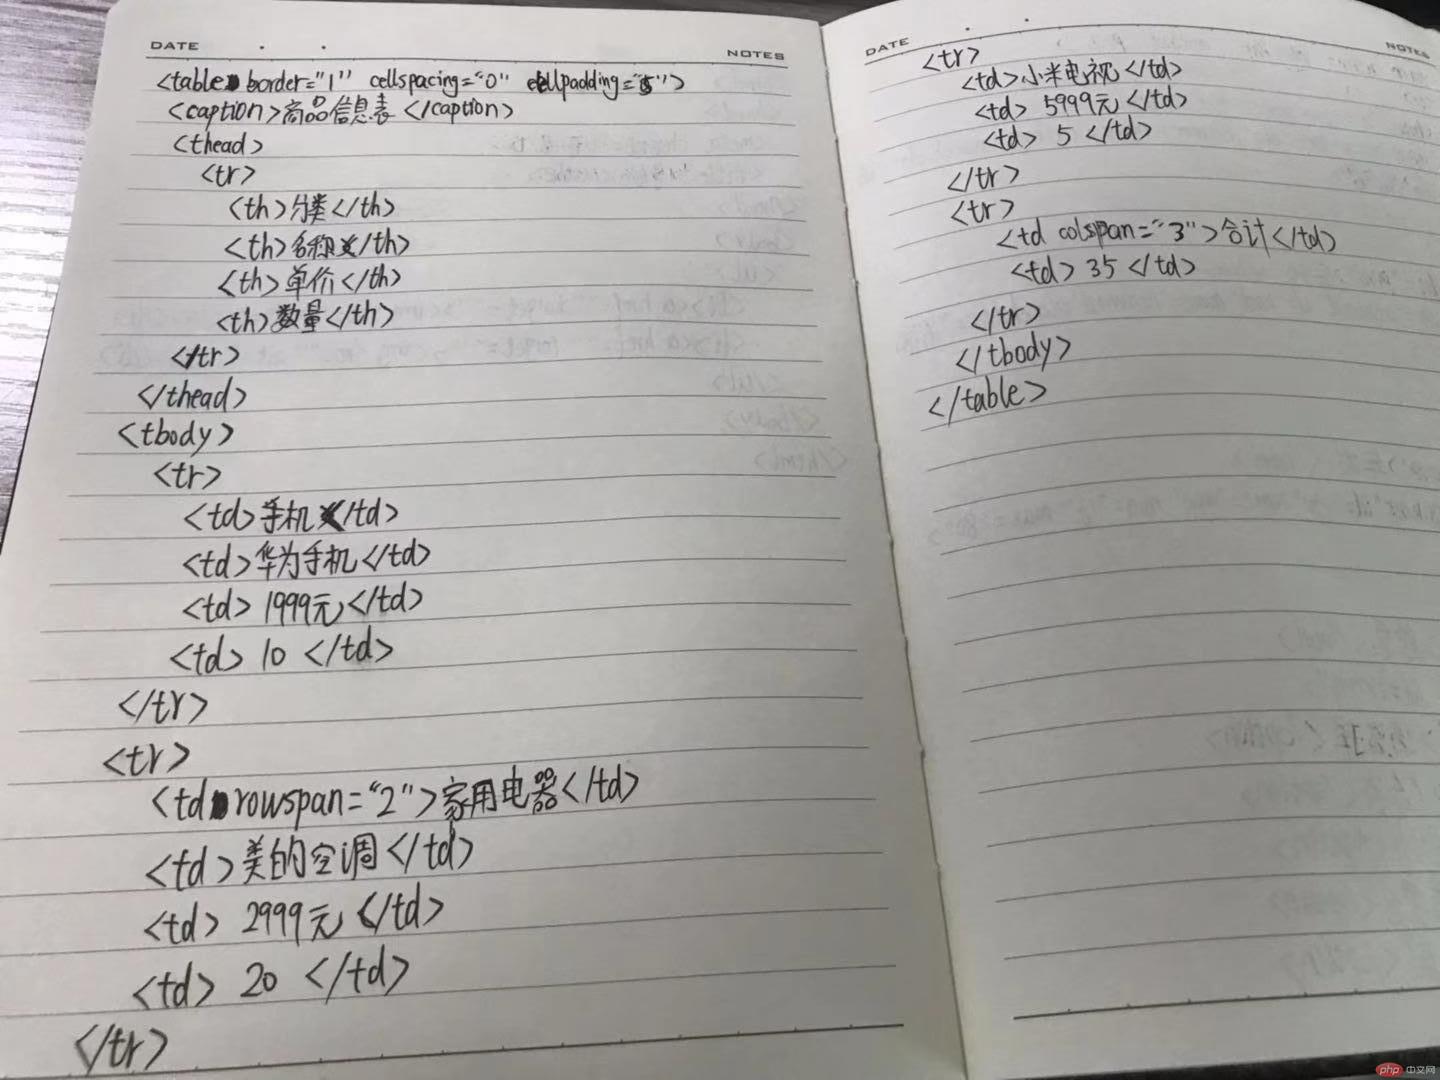 DATE
NOTES
<table border="1" cellspacing="0" cellpadding="5">
<caption>商品信息表</caption>
<thead>
<tr>
<th>分类</th>
<th>名称</th>
<th>单价</th>
<th>数量</th>
</tr>
</thead>
<tbody>
<tr>
<td>手机</td>
<td>华为手机</td>
<td>1999元</td>
<td>10</td>
</tr>
<tr>
<td rowspan="2">家用电器</td>
<td>美的空调</td>
<td>2999元</td>
<td>20</td>
</tr>
DATE
NOTES
<tr>
<td>小米电视</td>
<td>5999元</td>
<td>5</td>
</tr>
<tr>
<td colspan="3">合计</td>
<td>35</td>
</tr>
</tbody>
</table>
php 中文网